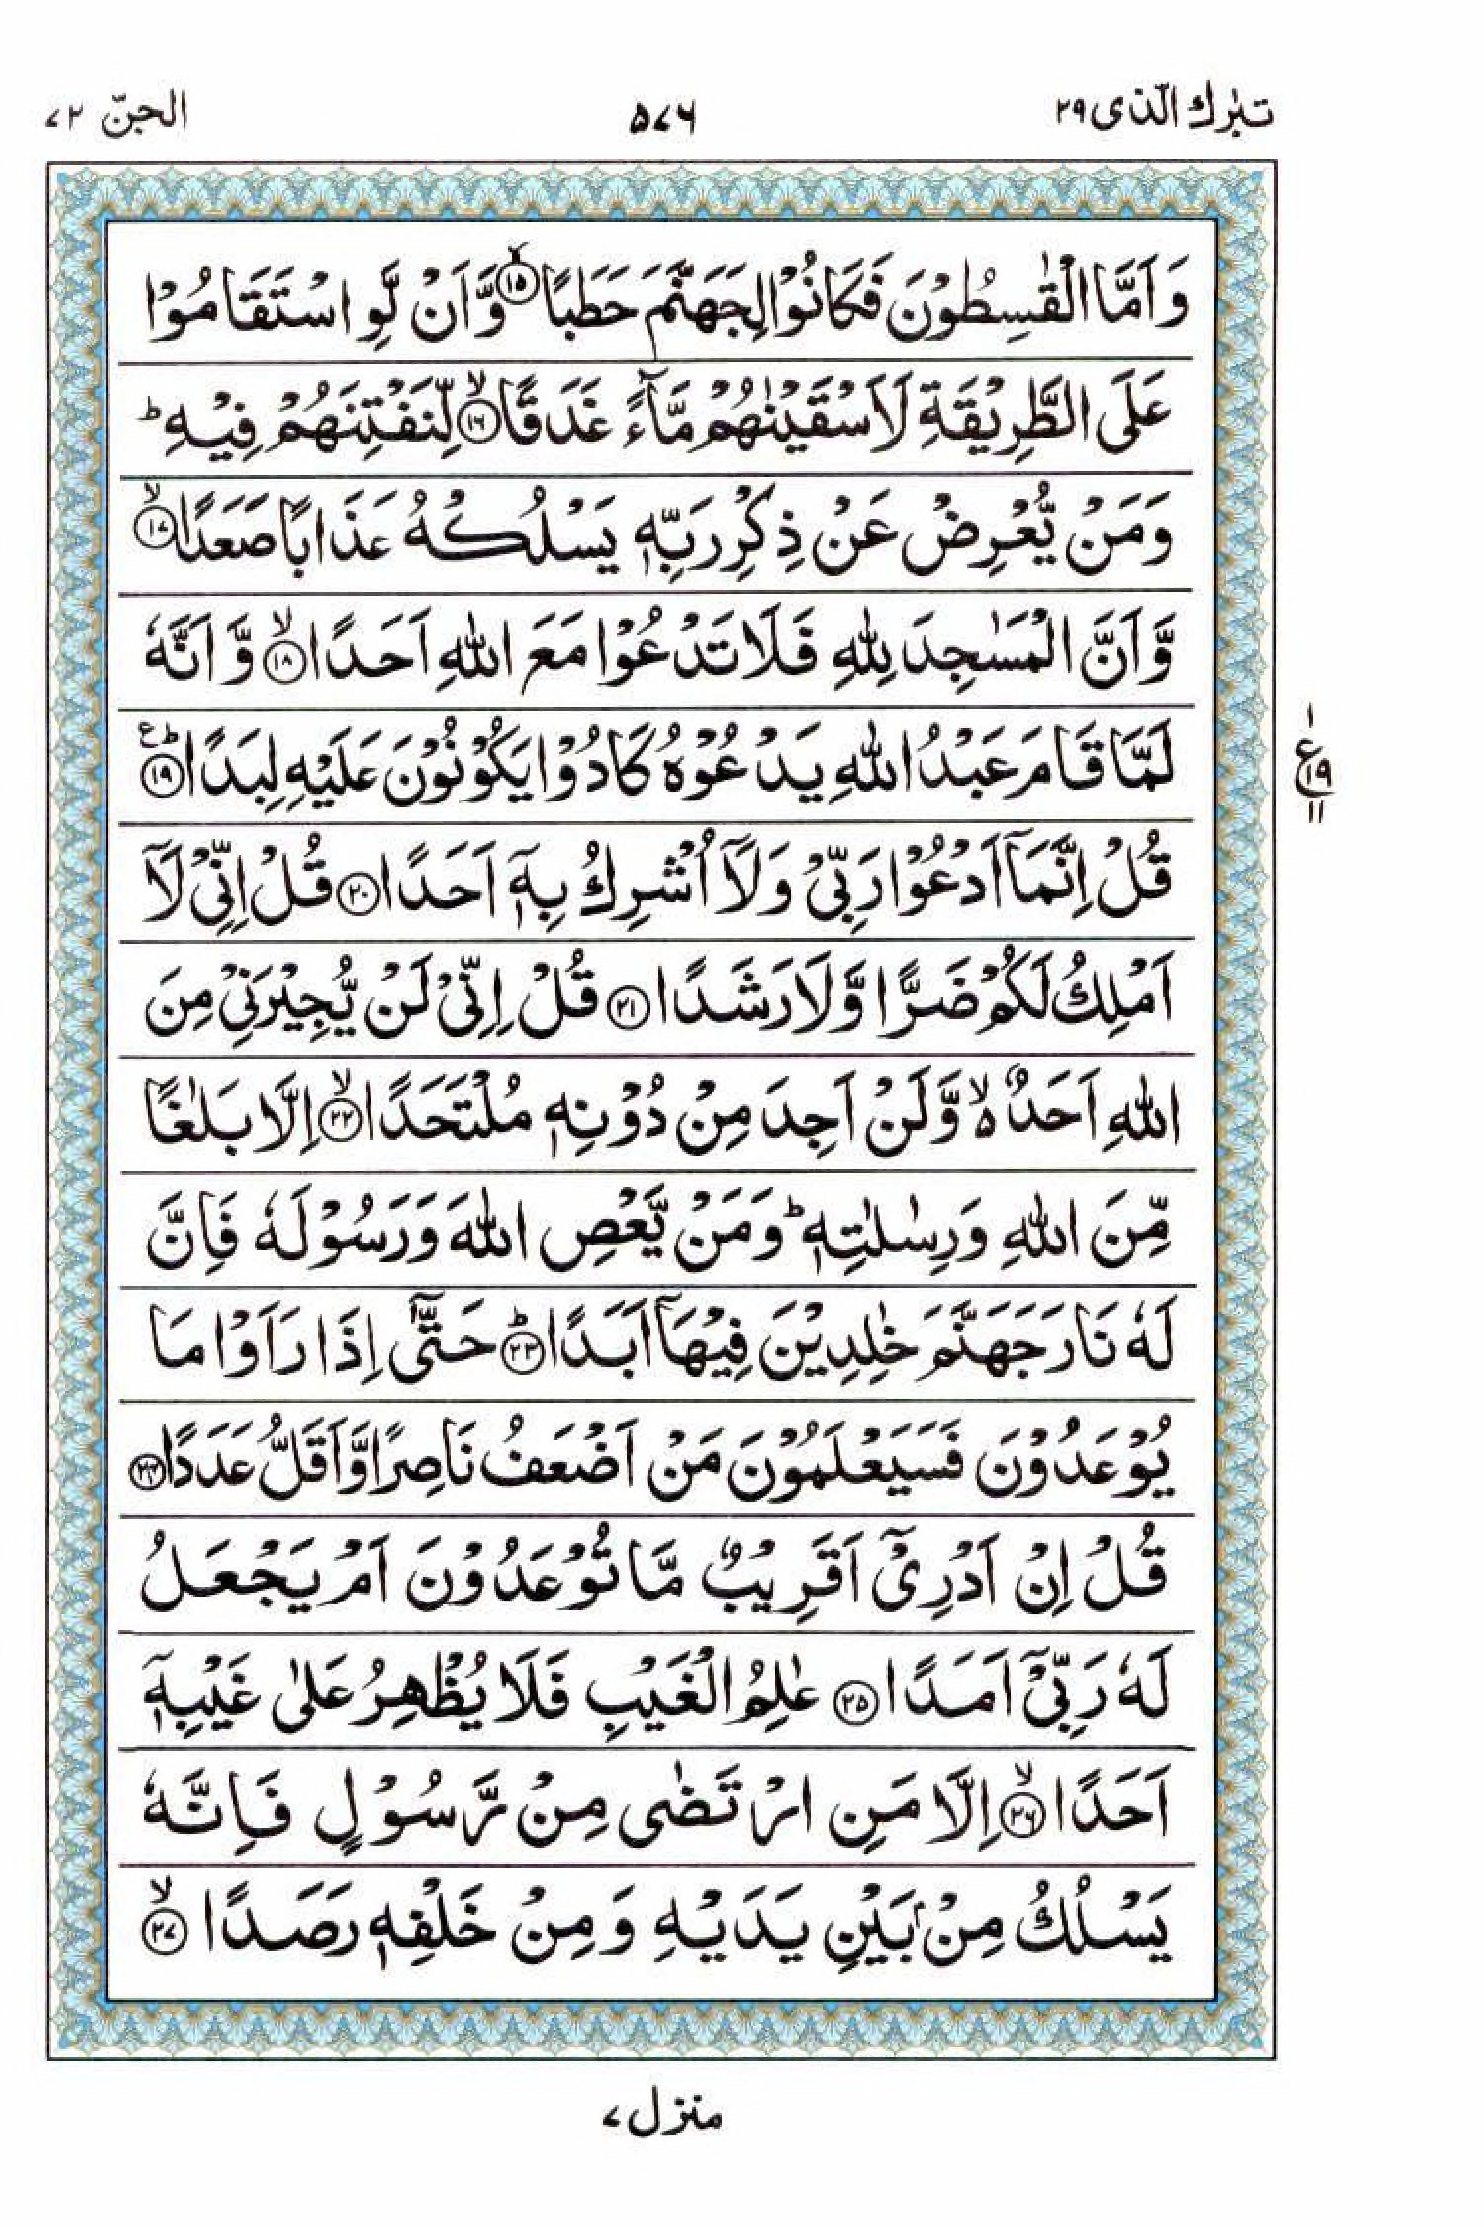 تبٰرك الّذی ۲۹
۵۷۶
الجنّ ۷۲
وَاَمَّا الْقٰسِطُوْنَ فَكَانُوْا لِجَهَنَّمَ حَطَبًا ۙ‏﴿۱۵﴾ وَّاَنْ لَّوِ اسْتَقَامُوْا
عَلَى الطَّرِيْقَةِ لَاَسْقَيْنٰهُمْ مَّآءً غَدَقًا ۙ‏﴿۱۶﴾ لِّنَفْتِنَهُمْ فِيْهِ ؕ
وَمَنْ يُّعْرِضْ عَنْ ذِكْرِ رَبِّهٖ يَسْلُكْهُ عَذَابًا صَعَدًا ۙ‏﴿۱۷﴾
وَّاَنَّ الْمَسٰجِدَ لِلّٰهِ فَلَا تَدْعُوْا مَعَ اللّٰهِ اَحَدًا ۙ‏﴿۱۸﴾ وَّاَنَّهٗ
لَمَّا قَامَ عَبْدُ اللّٰهِ يَدْعُوْهُ كَادُوْا يَكُوْنُوْنَ عَلَيْهِ لِبَدًا ؕع‏﴿۱۹﴾
۱
ع
۱۹
۱۱
قُلْ اِنَّمَاۤ اَدْعُوْا رَبِّىْ وَلَاۤ اُشْرِكُ بِهٖۤ اَحَدًا ‏﴿۲۰﴾ قُلْ اِنِّىْ لَاۤ
اَمْلِكُ لَكُمْ ضَرًّا وَّلَا رَشَدًا ‏﴿۲۱﴾ قُلْ اِنِّىْ لَنْ يُّجِيْرَنِىْ مِنَ
اللّٰهِ اَحَدٌ ۙ۬ وَّلَنْ اَجِدَ مِنْ دُوْنِهٖ مُلْتَحَدًا ۙ‏﴿۲۲﴾ اِلَّا بَلٰغًا
مِّنَ اللّٰهِ وَرِسٰلٰتِهٖ ؕ وَمَنْ يَّعْصِ اللّٰهَ وَرَسُوْلَهٗ فَاِنَّ
لَهٗ نَارَ جَهَنَّمَ خٰلِدِيْنَ فِيْهَاۤ اَبَدًا ؕ‏﴿۲۳﴾ حَتّٰۤى اِذَا رَاَوْا مَا
يُوْعَدُوْنَ فَسَيَعْلَمُوْنَ مَنْ اَضْعَفُ نَاصِرًا وَّاَقَلُّ عَدَدًا ‏﴿۲۴﴾
قُلْ اِنْ اَدْرِىْۤ اَقَرِيْبٌ مَّا تُوْعَدُوْنَ اَمْ يَجْعَلُ
لَهٗ رَبِّىْۤ اَمَدًا ‏﴿۲۵﴾ عٰلِمُ الْغَيْبِ فَلَا يُظْهِرُ عَلٰى غَيْبِهٖۤ
اَحَدًا ۙ‏﴿۲۶﴾ اِلَّا مَنِ ارْتَضٰى مِنْ رَّسُوْلٍ فَاِنَّهٗ
يَسْلُكُ مِنْۢ بَيْنِ يَدَيْهِ وَمِنْ خَلْفِهٖ رَصَدًا ۙ‏﴿۲۷﴾
منزل ۷